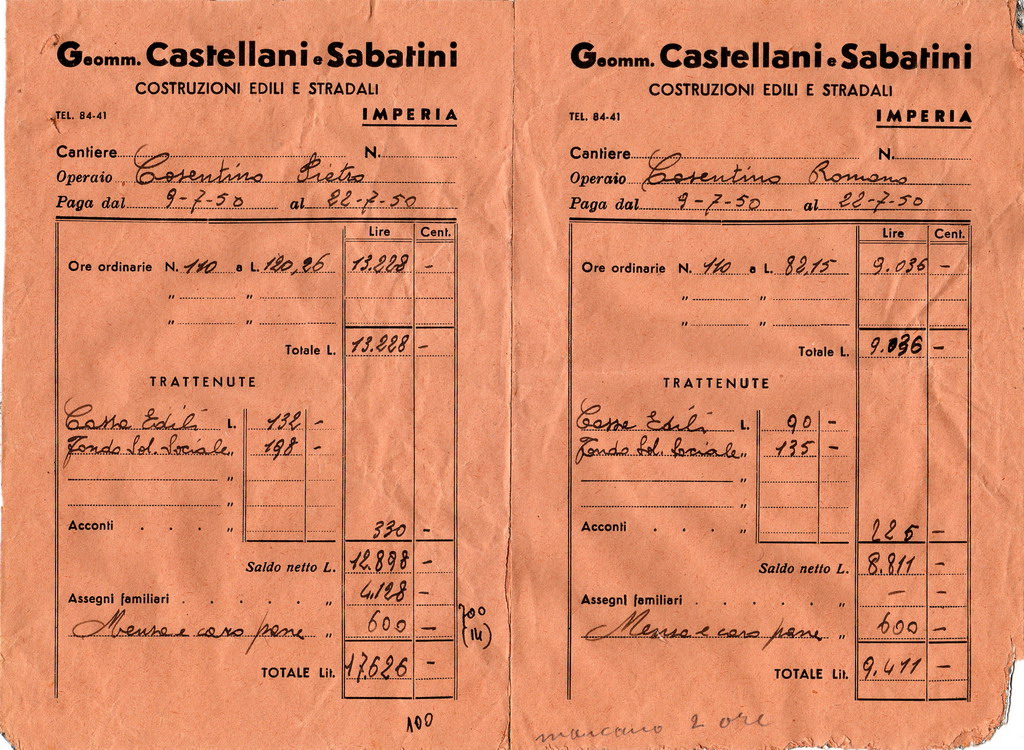 Geomm. Castellani e Sabatini
COSTRUZIONI EDILI E STRADALI
TEL. 84-41 IMPERIA
Cantiere N.
Operaio Cosentino Pietro
Paga dal 9-7-50 al 22-7-50
Lire Cent.
Ore ordinarie N. 110 a L. 120,26 13.228 -
" "
" "
Totale L. 13.228 -
TRATTENUTE
Casse Edili L. 132 -
Fondo Sol. Sociale " 198 -
"
"
Acconti . . . " 330 -
Saldo netto L. 12.898 -
Assegni familiari . . . . . " 4.128 -
Mensa e caro pane " 600 -
700
(14)
TOTALE Lit. 17.626 -
100
Geomm. Castellani e Sabatini
COSTRUZIONI EDILI E STRADALI
TEL. 84-41 IMPERIA
Cantiere N.
Operaio Cosentino Romano
Paga dal 9-7-50 al 22-7-50
Lire Cent.
Ore ordinarie N. 110 a L. 82,15 9.036 -
" "
" "
Totale L. 9.036 -
TRATTENUTE
Casse Edili L. 90 -
Fondo Sol. Sociale " 135 -
"
"
Acconti . . . " 225 -
Saldo netto L. 8.811 -
Assegni familiari . . . . . " - -
Mensa e caro pane " 600 -
TOTALE Lit. 9.411 -
mancano 2 ore